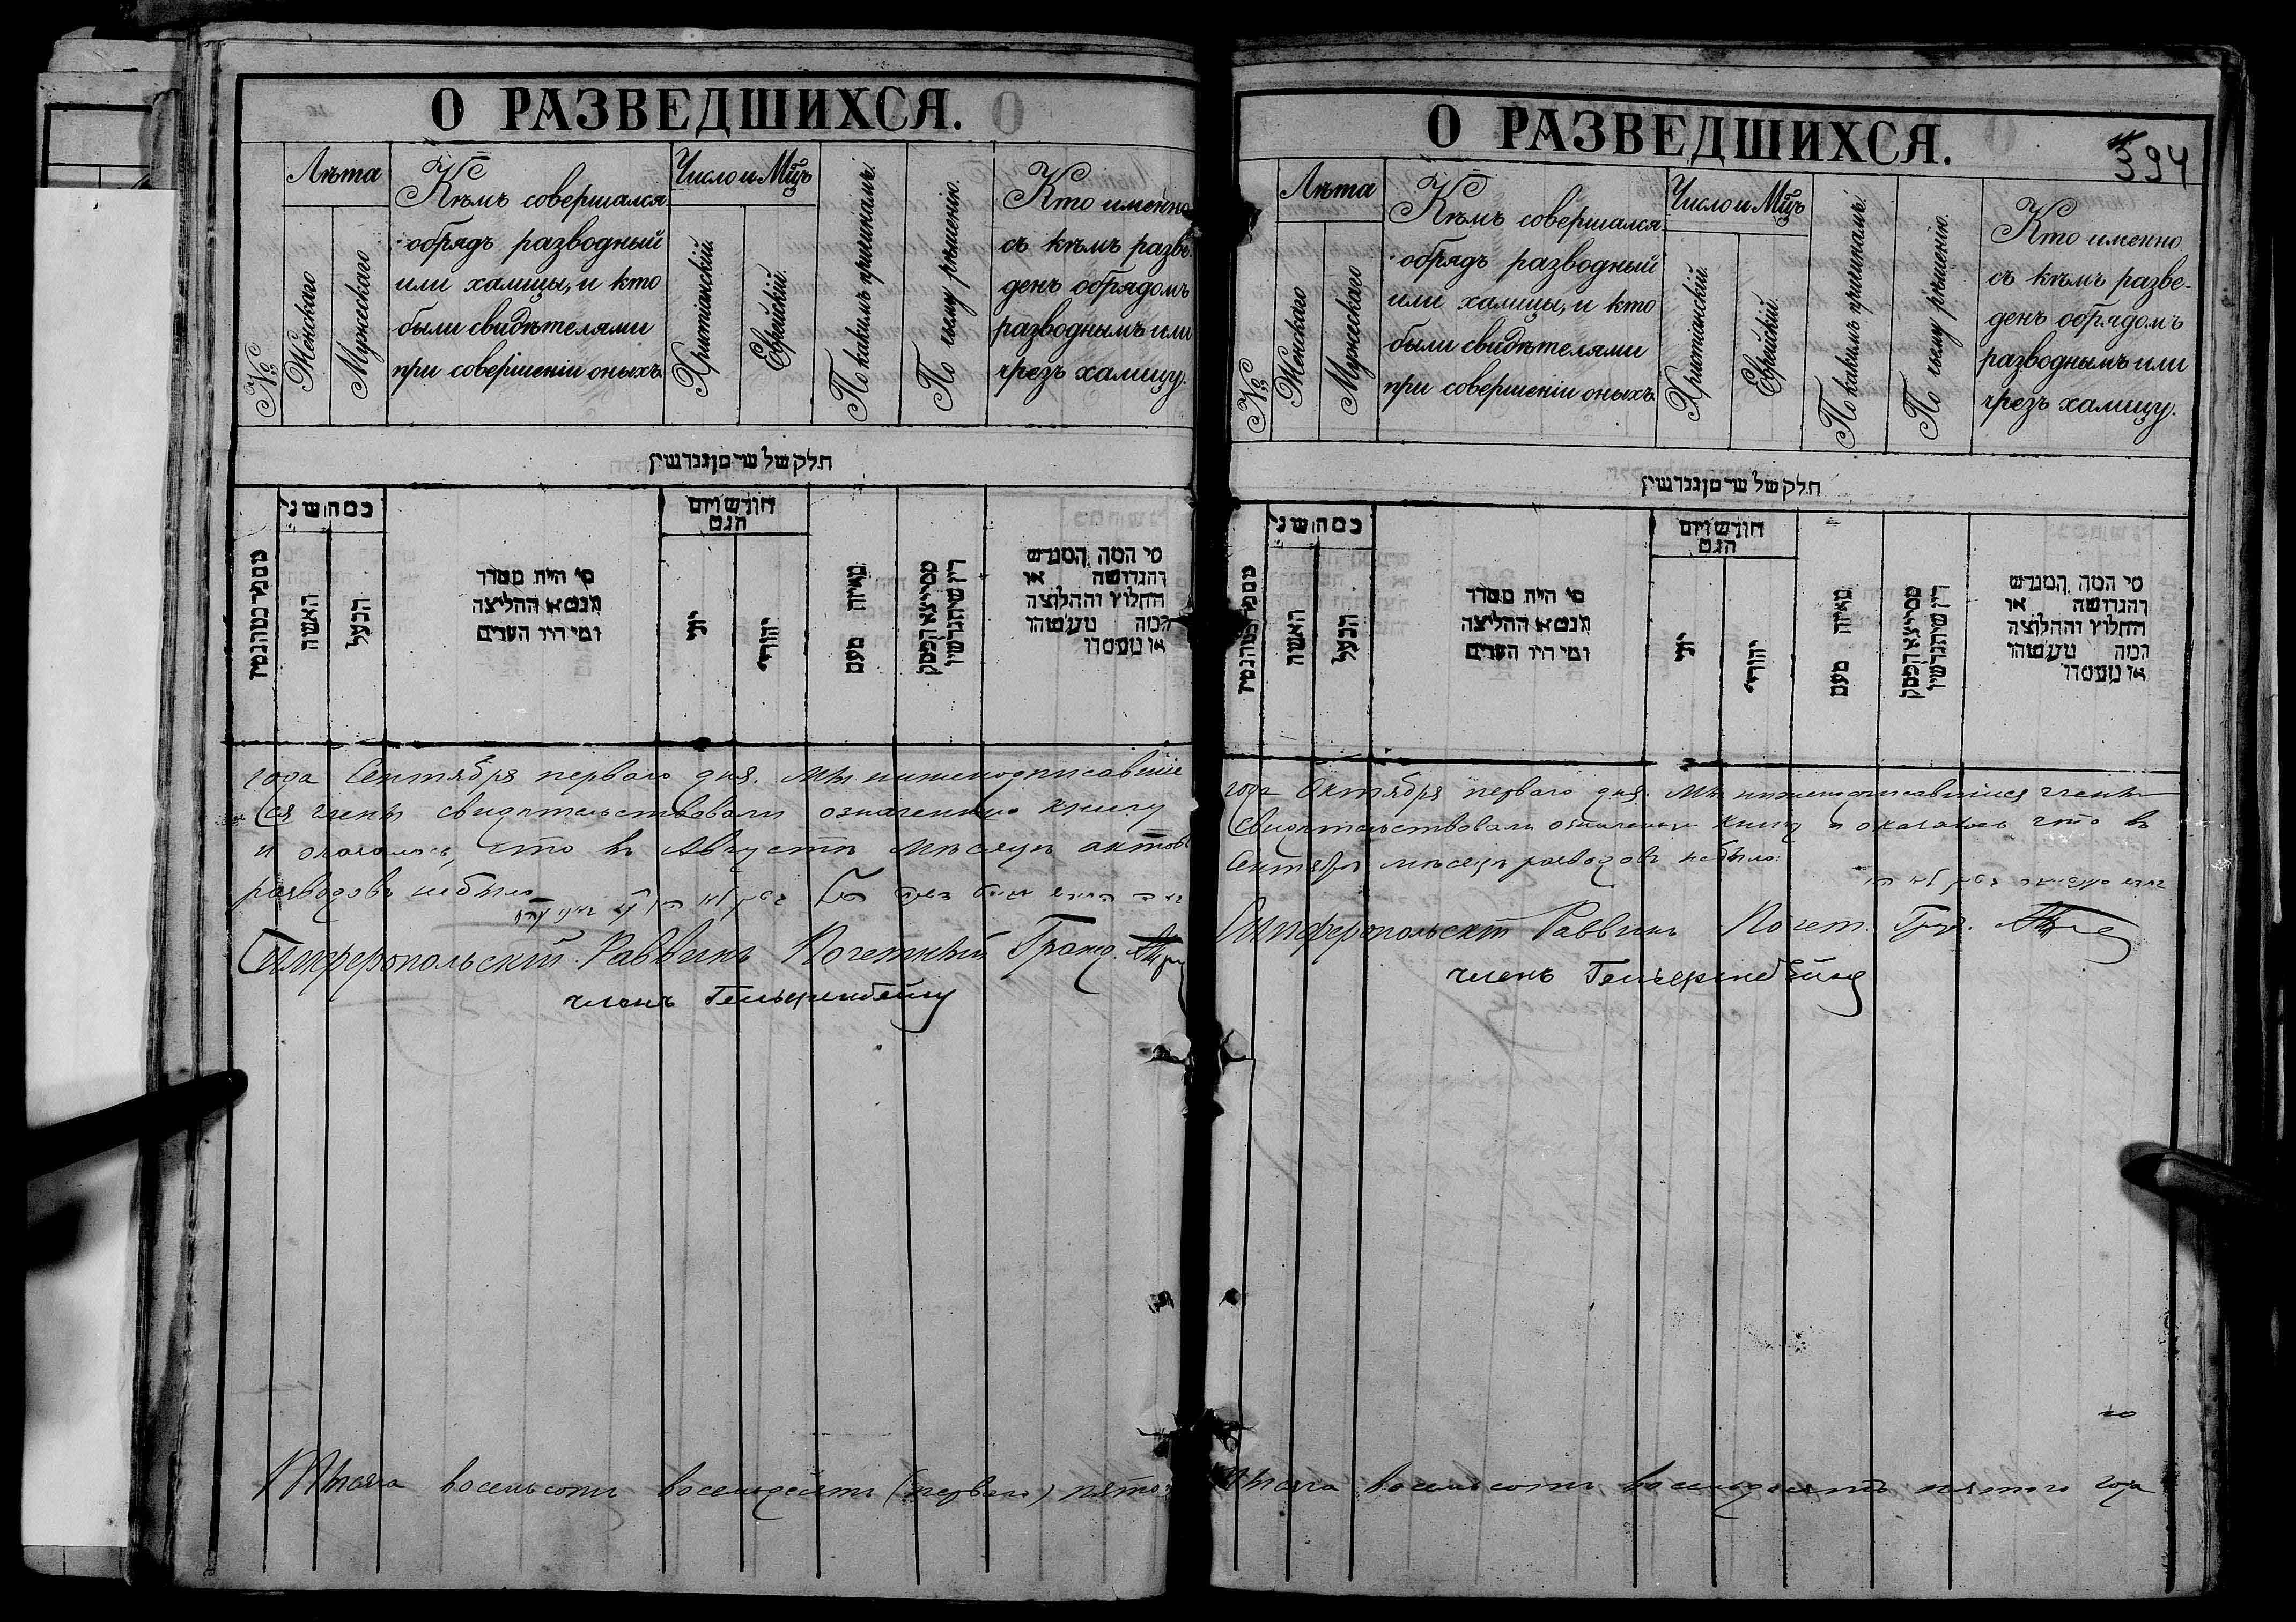 О РАЗВЕДШИХСЯ.
№
Лѣта
Женскаго
Мужескаго
Кѣмъ совершался
обрядъ разводный
или халицы, и кто
были свидѣтелями
при совершеніи оныхъ.
Число и Мц҃ъ
Христіанскій.
Еврейскій.
По какимъ причинамъ.
По чьему рѣшенію.
Кто именно
съ кѣмъ разве-
денъ обрядомъ
разводнымъ или
чрезъ халицу.
חלק של
כמה שני
האשה
הבעל
מי היה מסדר
הגט או החליצה
ומי היו העדים
חודש ויום
הגט
יוני
יהודי
מאיזה טעם
מי המה המגרש
והגרושה או
החלוץ והחלוצה
года Сентября перваго дня. Мы нижеподписавшіе
ся члены свидѣтельствовали означенную книгу
и оказалось, что въ Августѣ мѣсяцѣ актовъ
разводовъ не было
Симферопольскій Раввинъ Почетный Гражд.
членъ
Тысяча восемьсотъ восемдесятъ (перваго) пято
О РАЗВЕДШИХСЯ.
394
№
Лѣта
Женскаго
Мужескаго
Кѣмъ совершался
обрядъ разводный
или халицы, и кто
были свидѣтелями
при совершеніи оныхъ.
Число и Мц҃ъ
Христіанскій.
Еврейскій.
По какимъ причинамъ.
По чьему рѣшенію.
Кто именно
съ кѣмъ разве-
денъ обрядомъ
разводнымъ или
чрезъ халицу.
חלק של
כמה שני
האשה
הבעל
מי היה מסדר
הגט או החליצה
ומי היו העדים
חודש ויום
הגט
יוני
יהודי
מאיזה טעם
מי המה המגרש
והגרושה או
החלוץ והחלוצה
года Октября перваго дня. Мы нижеподписавшіеся члены
свидѣтельствовали означенную книгу и оказалось что въ
Сентябрѣ мѣсяцѣ разводовъ не было.
Симферопольскій Раввинъ Почет. Граж.
членъ
Тысяча восемьсотъ восемдесятъ пятаго года